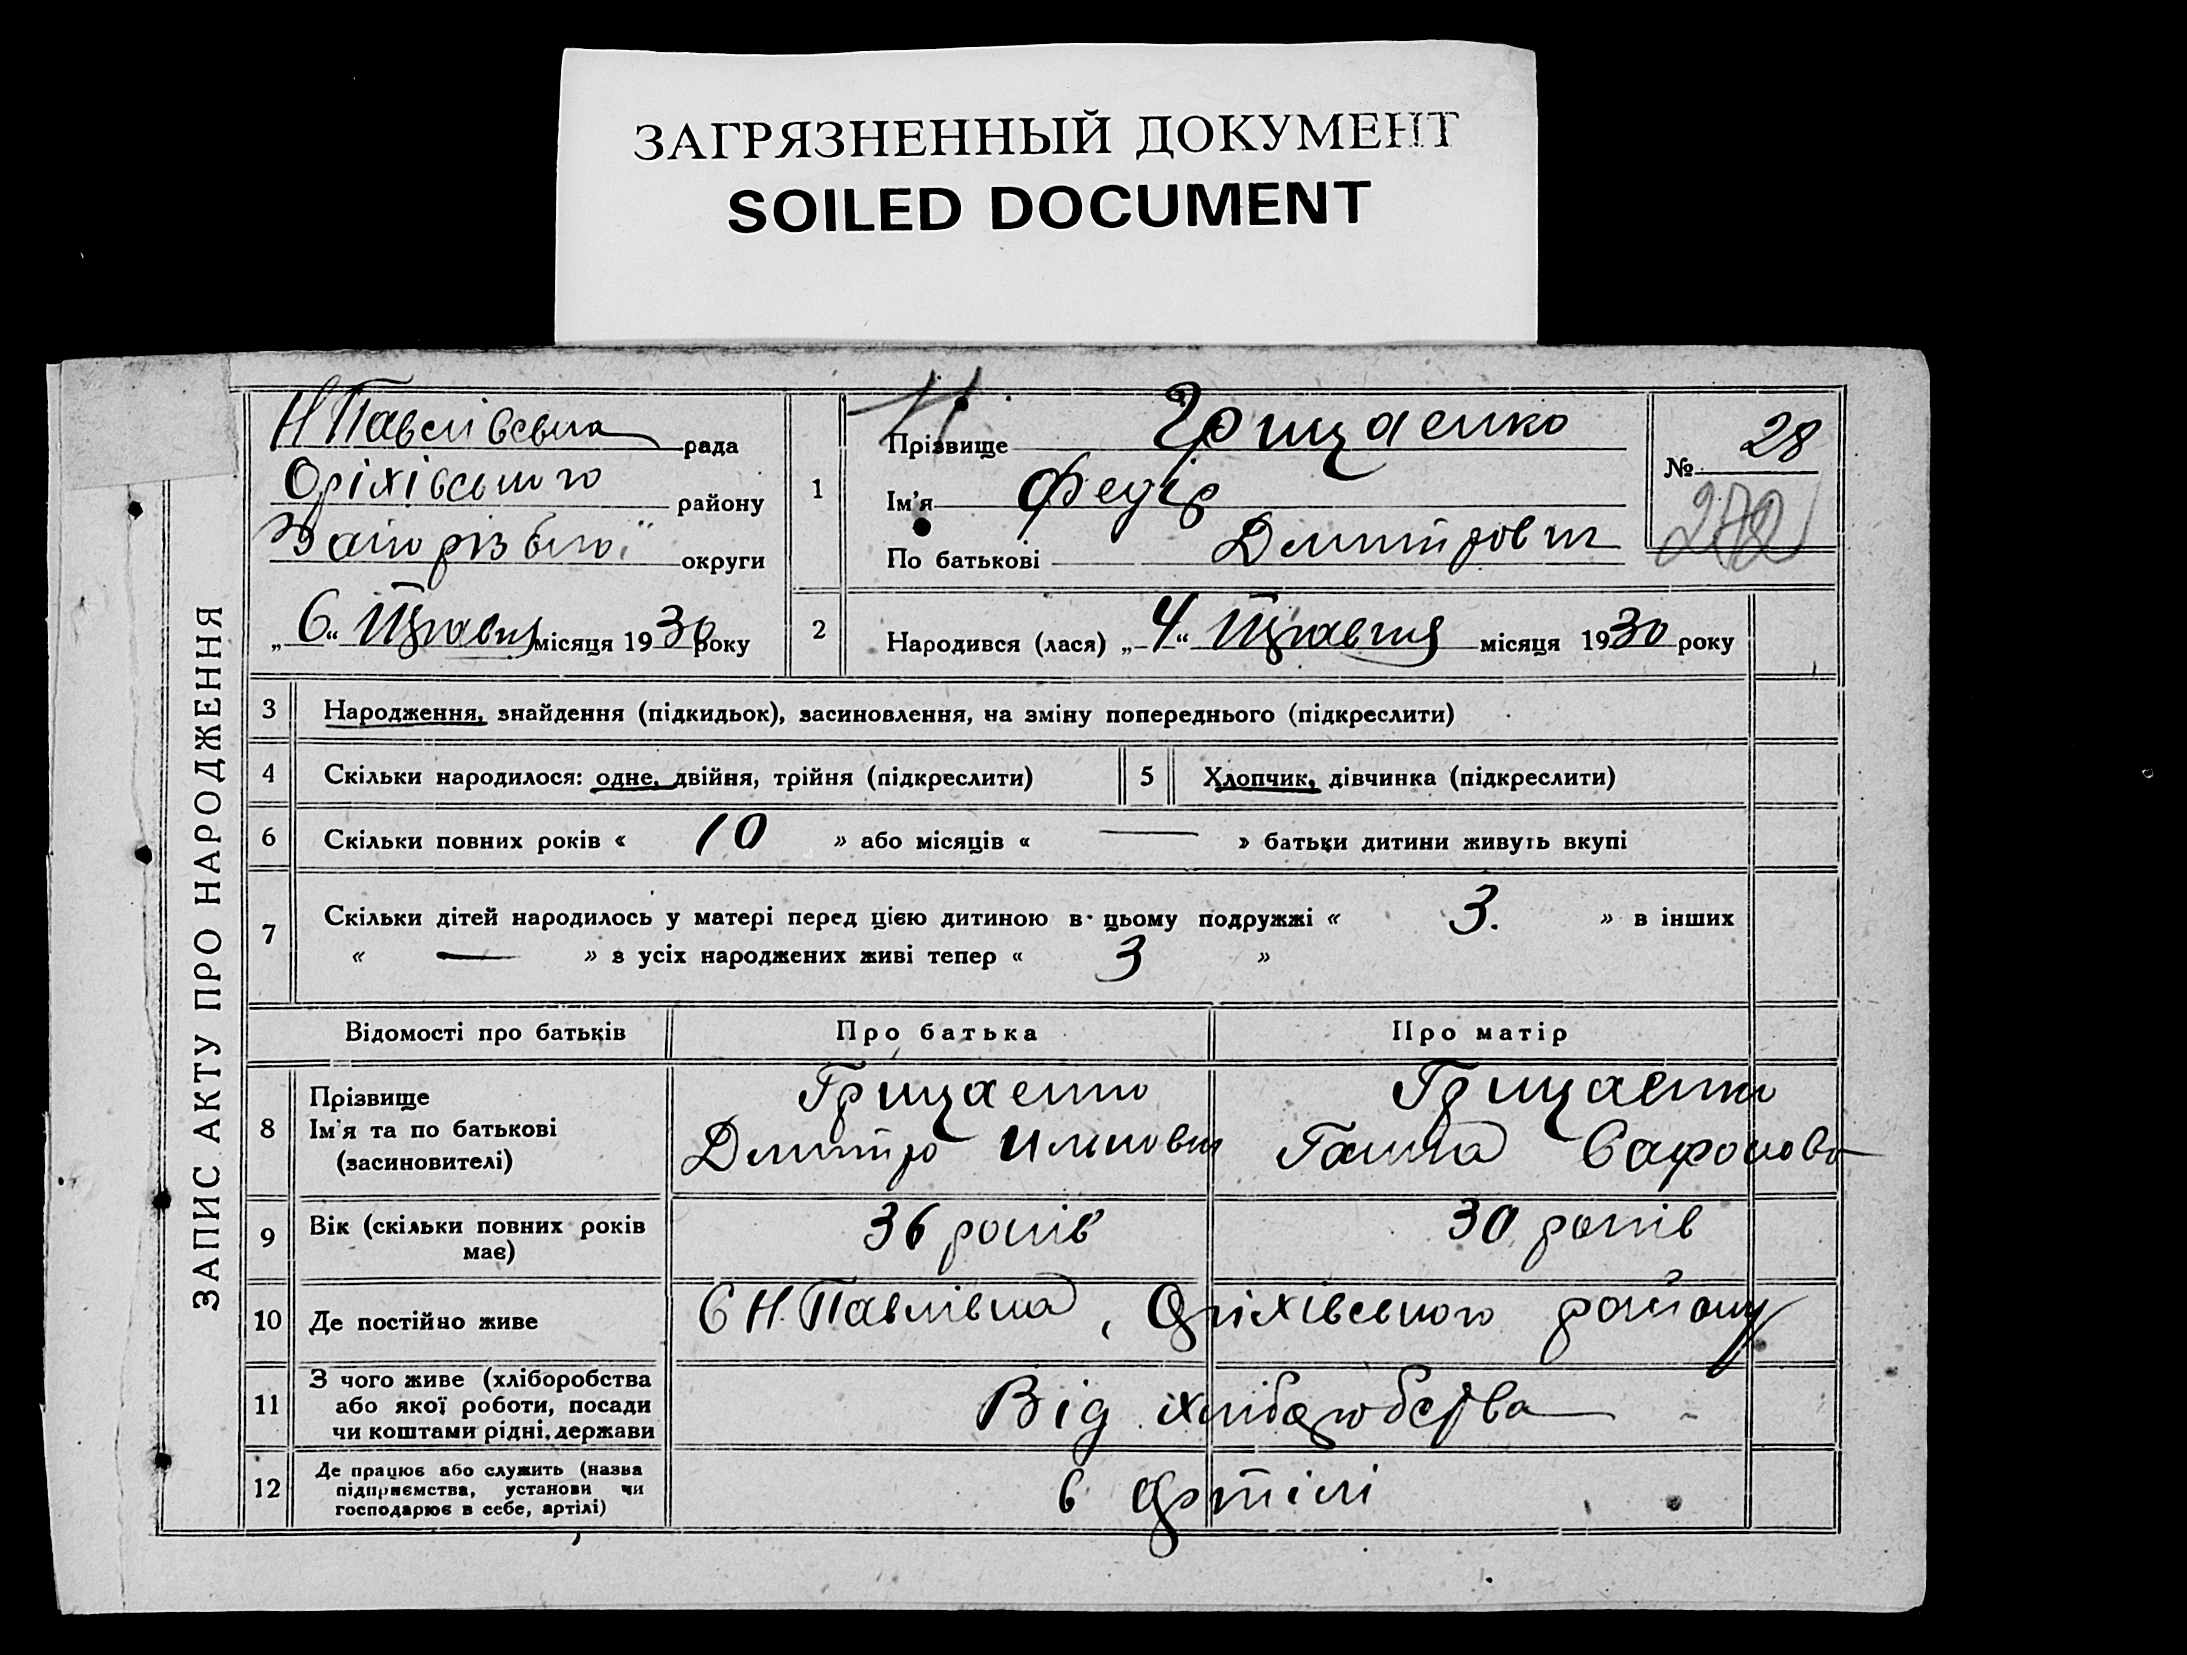 ЗАГРЯЗНЕННЫЙ ДОКУМЕНТ
SOILED DOCUMENT
ЗАПИС АКТУ ПРО НАРОДЖЕННЯ
Н Павлівська рада
Оріхівського району
Запорізької округи
„6“ Травня місяця 1930 року
1
Прізвище Грицаенко
Ім'я Федір
По батькові Дмитрович
№ 28
2 Народився (лася) „4“ Травня місяця 1930 року
3 Народження, знайдення (підкидьок), засиновлення, на зміну попереднього (підкреслити)
4 Скільки народилося: одне, двійня, трійня (підкреслити) 5 Хлопчик, дівчинка (підкреслити)
6 Скільки повних років « 10 » або місяців « — » батьки дитини живуть вкупі
7 Скільки дітей народилось у матері перед цією дитиною в цьому подружжі « 3. » в інших
« — » з усіх народжених живі тепер « 3 »
Відомості про батьків Про батька Про матір
8 Прізвище
Ім'я та по батькові
(засиновителі)
Грицаенко
Дмитро
Грицаенко
Ганна Сафонова
9 Вік (скільки повних років
має)
36 років 30 років
10 Де постійно живе С Н. Павлівка, Оріхівського району
11 З чого живе (хліборобства
або якої роботи, посади
чи коштами рідні, держави
Від хліборобства
12 Де працює або служить (назва
підприємства, установи чи
господарює в себе, артілі)
в артілі